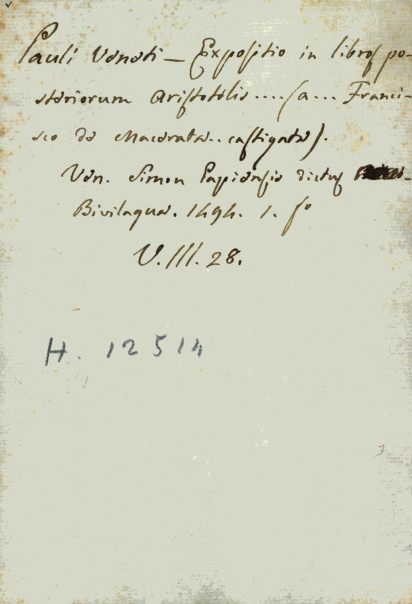 Pauli Veneti — Expositio in libros po-
steriorum Aristotelis .... (a ... Franci-
sco de Macerata .. castigata).
Ven. Simon Papiensis dictus
Bivilaqua. 1494. 1. fo
V. III. 28.
H. 12514